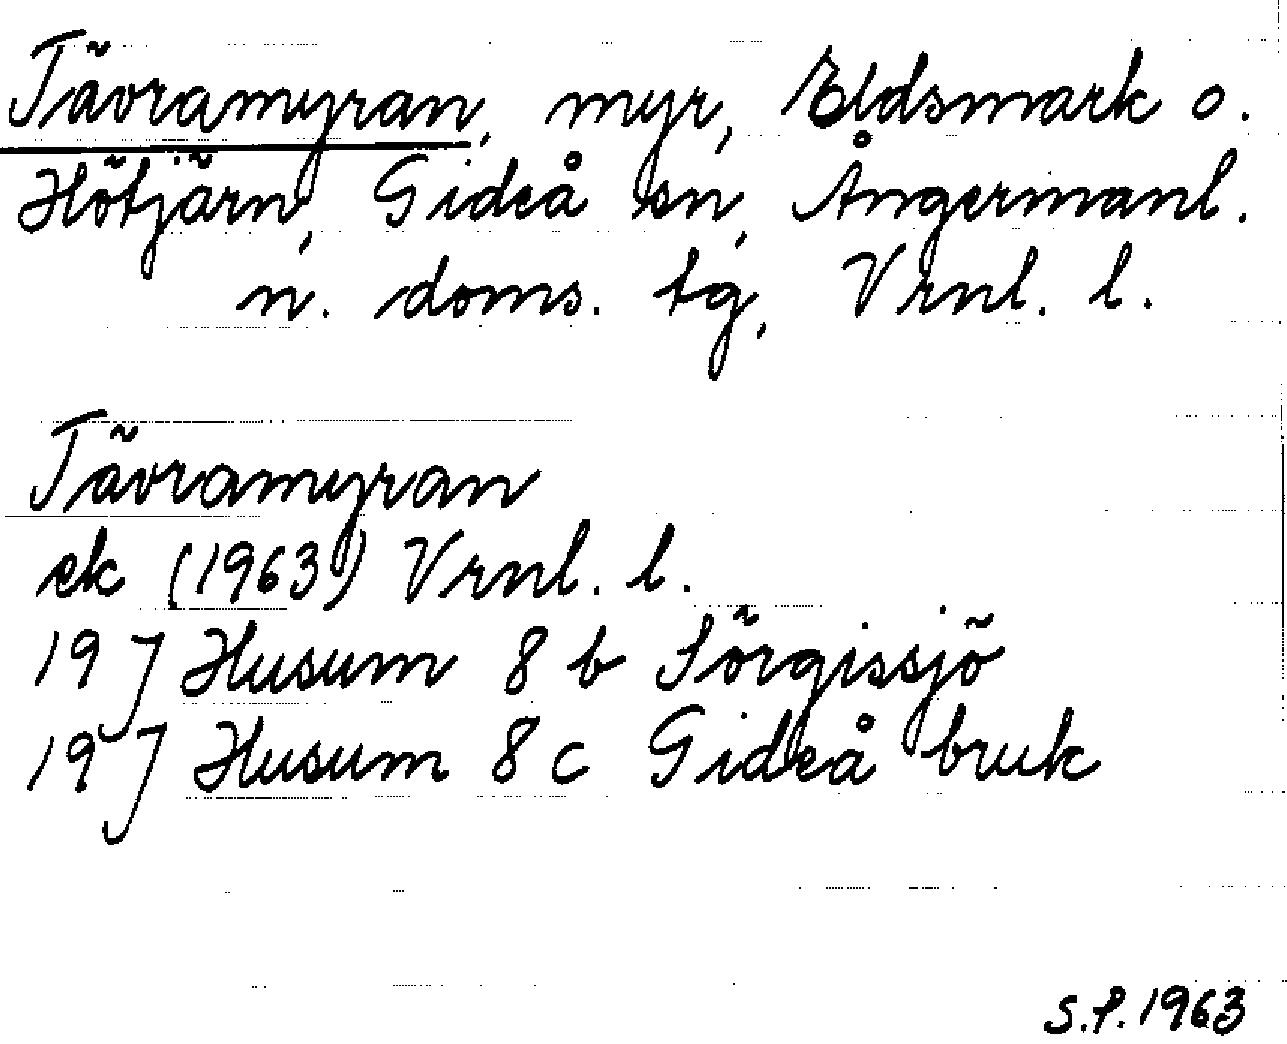 Tävramyran, myr, Eldsmark o.
Hötjärn, Gideå sn, Ångermanl.
n. doms. tg, Vrnl. l.
Tävramyran
ek (1963) Vrnl. l.
19 J Husum 8 b Sörgissjö
19 J Husum 8 c Gideå bruk
S.P. 1963